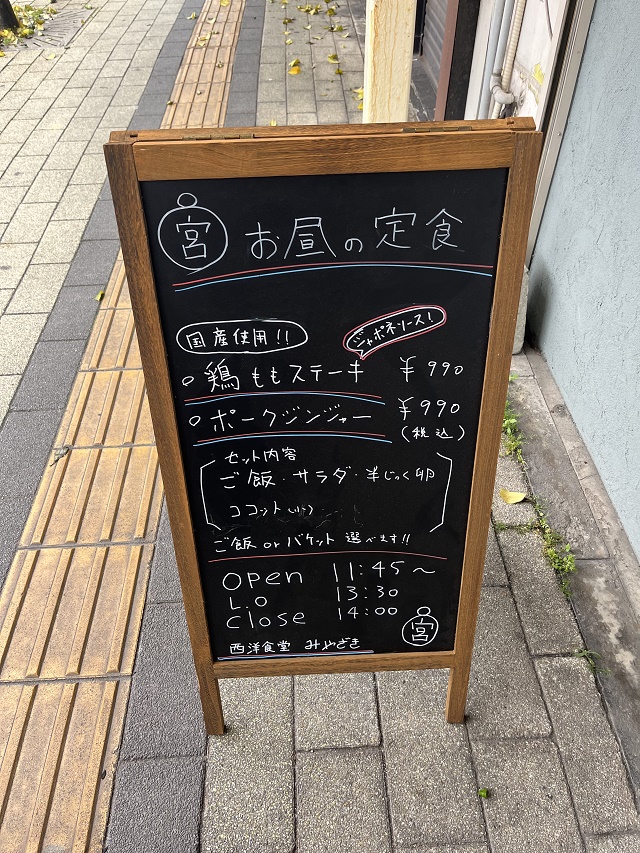 宮 お昼の定食
国産使用!!
ジャポネソース!
○鶏ももステーキ ¥990
○ポークジンジャー ¥990
(税込)
セット内容
ご飯・サラダ・半じゅく卵
ココット
ご飯 or バケット 選べます!!
OPen 11:45～
L.O 13:30
Close 14:00
宮
西洋食堂 みやざき